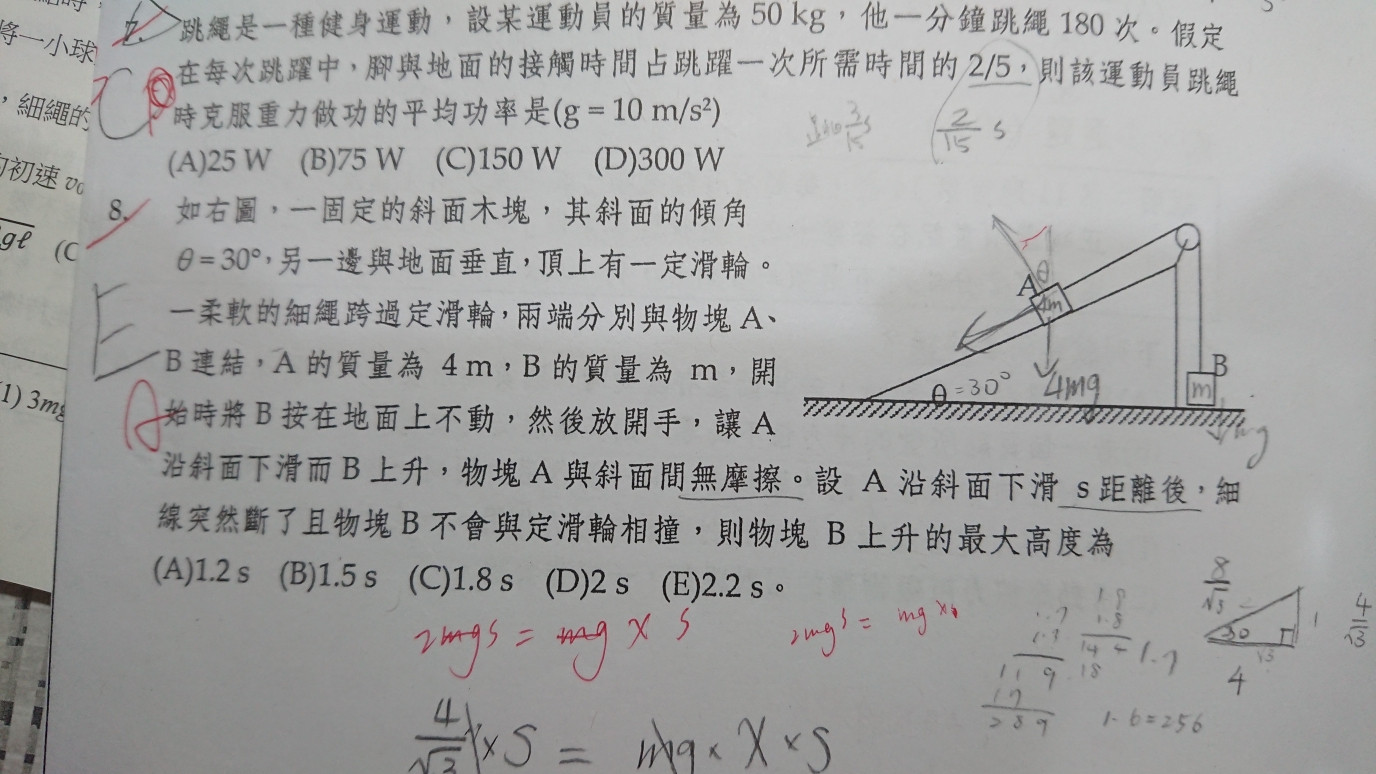 將一小球
，細繩的
初速 v₀
gℓ (C
(1) 3mg
7. 跳繩是一種健身運動，設某運動員的質量為 50 kg，他一分鐘跳繩 180 次。假定
在每次跳躍中，腳與地面的接觸時間占跳躍一次所需時間的 2/5，則該運動員跳繩
時克服重力做功的平均功率是(g = 10 m/s²)
2/15 s
(A)25 W (B)75 W (C)150 W (D)300 W
C
8. 如右圖，一固定的斜面木塊，其斜面的傾角
θ = 30°，另一邊與地面垂直，頂上有一定滑輪。
一柔軟的細繩跨過定滑輪，兩端分別與物塊 A、
B 連結，A 的質量為 4 m，B 的質量為 m，開
始時將 B 按在地面上不動，然後放開手，讓 A
沿斜面下滑而 B 上升，物塊 A 與斜面間無摩擦。設 A 沿斜面下滑 s 距離後，細
線突然斷了且物塊 B 不會與定滑輪相撞，則物塊 B 上升的最大高度為
(A)1.2 s (B)1.5 s (C)1.8 s (D)2 s (E)2.2 s。
E
A
θ
A
4m
B
m
θ = 30°
4mg
mg
2mgs = mg × s
2mgs = mg ×
4/√3 × S = mg × X × S
8/√3
30
1
√3
4
4/√3
1.8
1.8
144
18
1.7
119
17
289
1.6=256